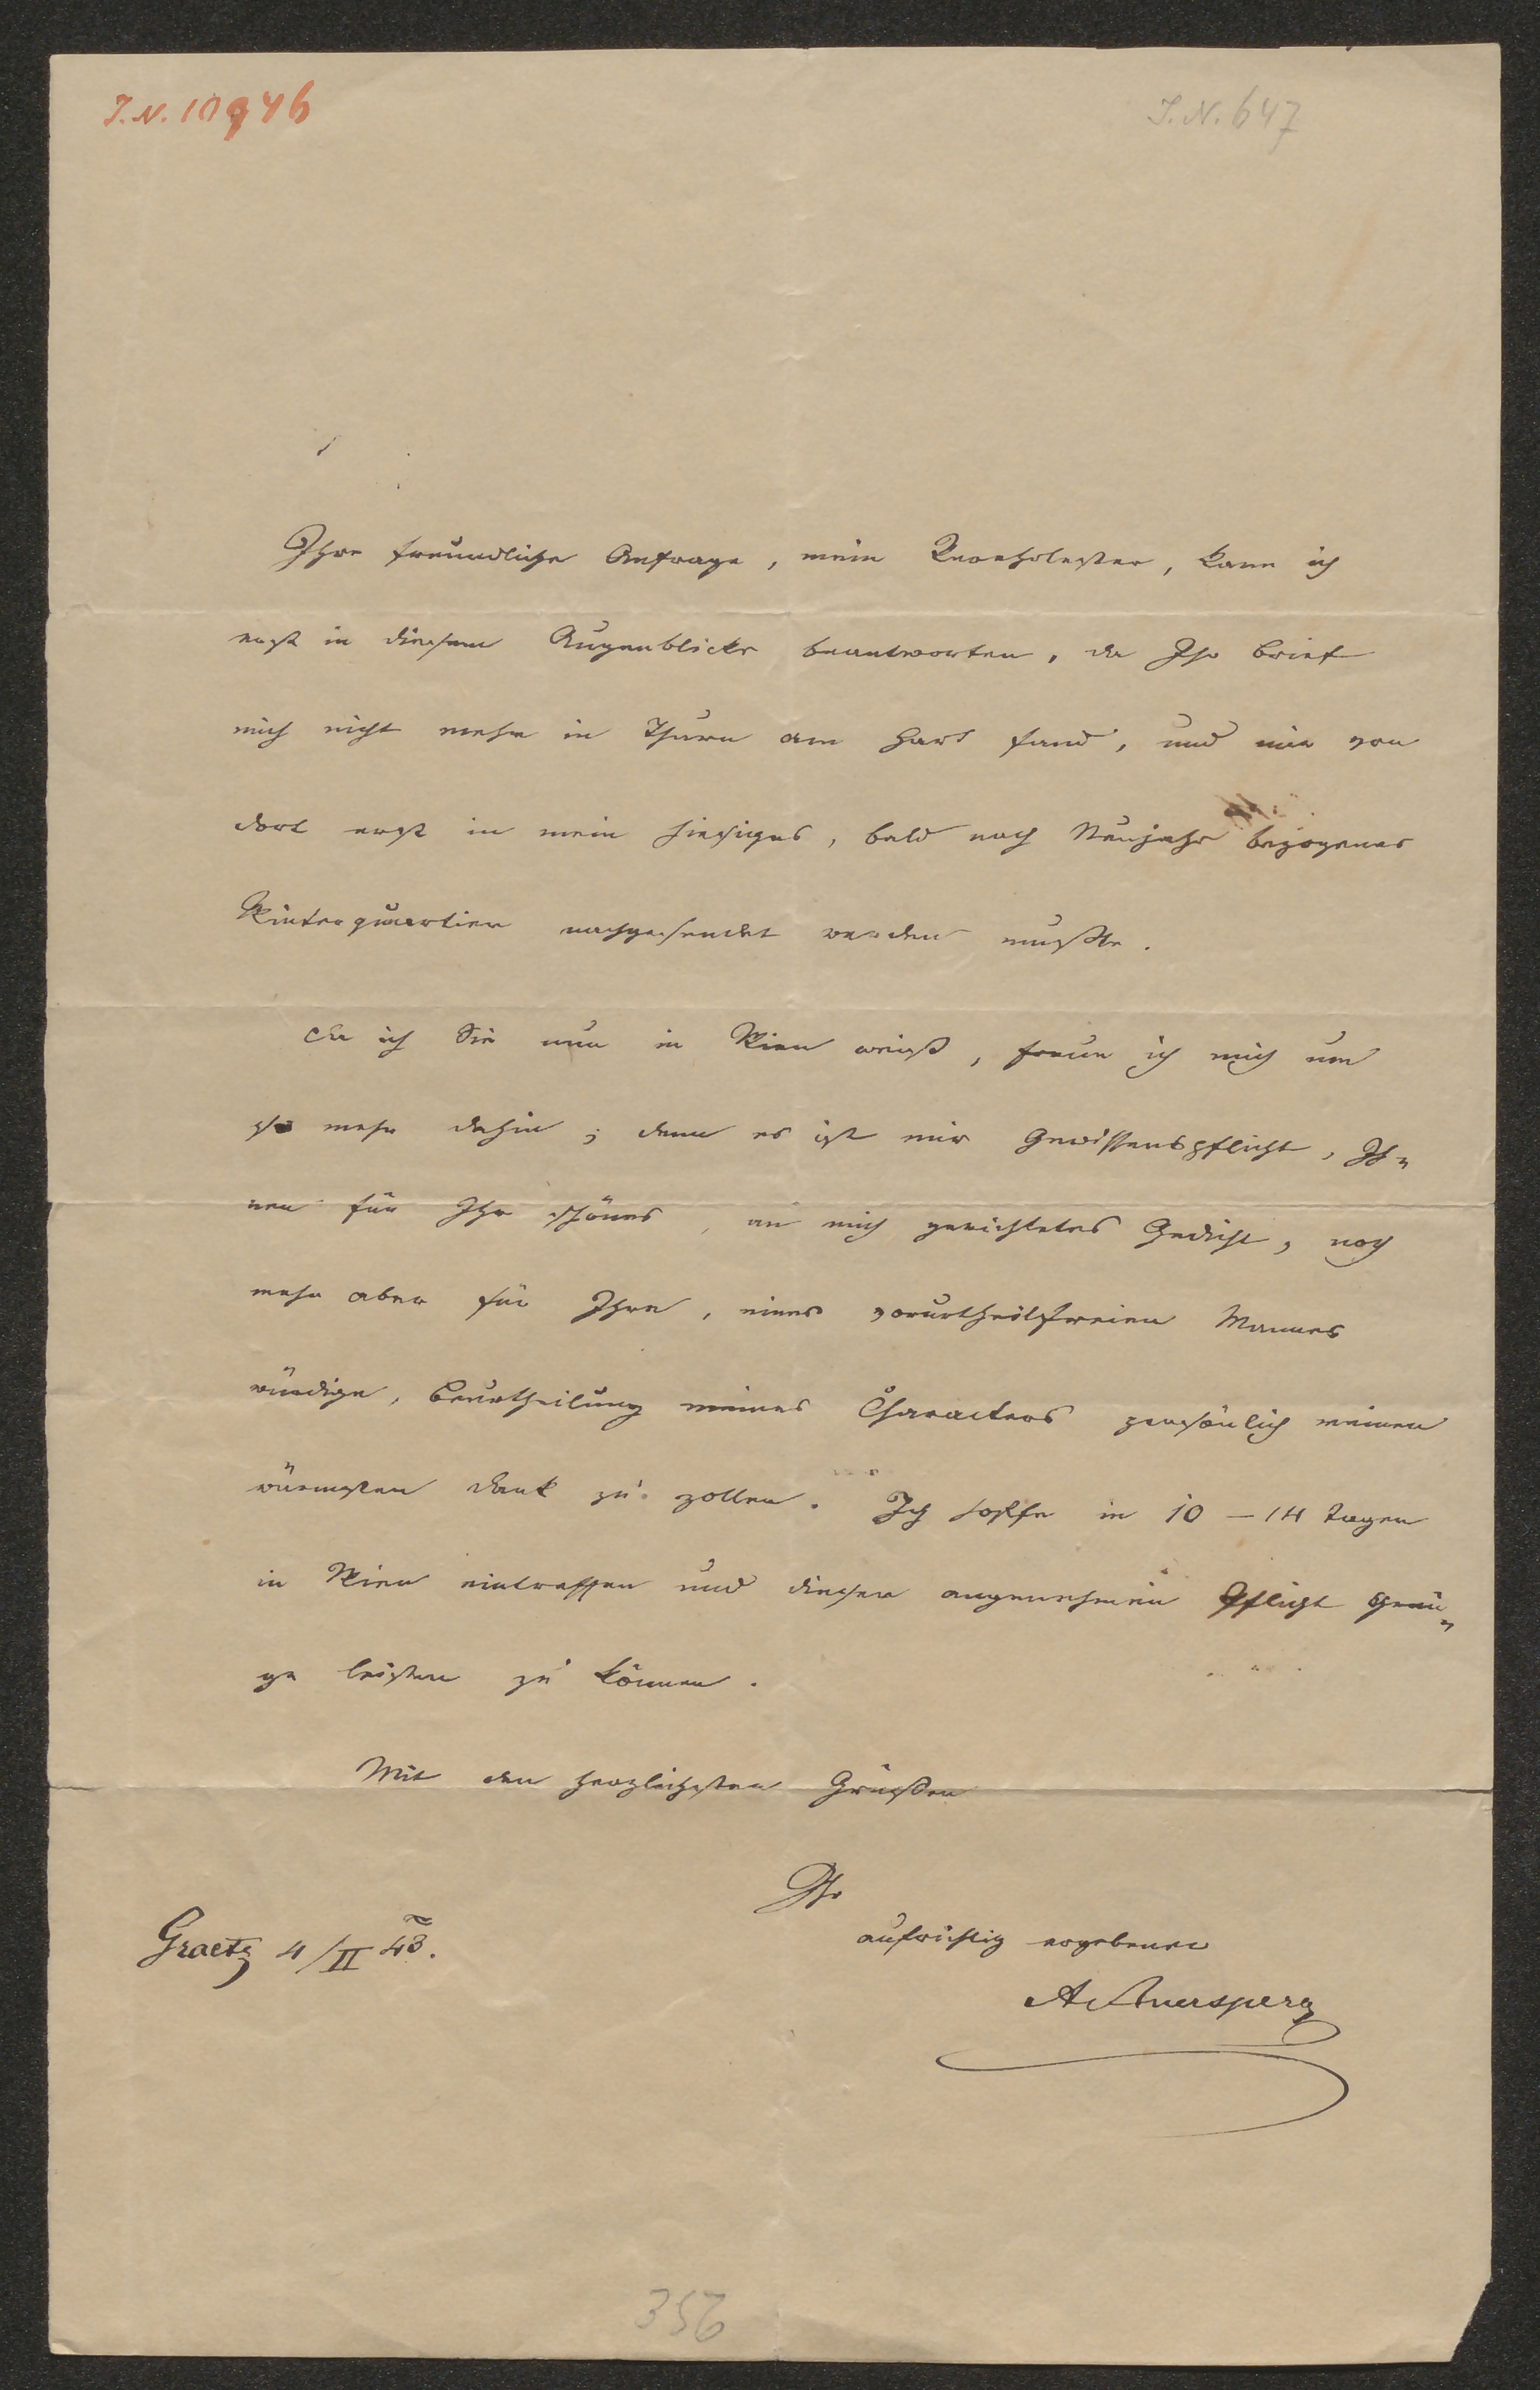 I.N. 10946
I.N. 647
Ihre freundliche Anfrage, mein Verehrtester, kann ich
erst in diesem Augenblicke beantworten, da Ihr Brief
mich nicht mehr in Thurn am Hart fand, und mir von
dort erst in mein hiesiges, bald nach Neujahr bezogenes
Winterquartier nachgesendet werden mußte.
Da ich Sie nun in Wien weiß, freue ich mich um
so mehr dahin; denn es ist mir Gewissenspflicht, Ih-
nen für Ihr schönes, an mich gerichtetes Gedicht, noch
mehr aber für Ihre, eines vorurtheilsfreien Mannes
würdige, Beurtheilung meines Characters persönlich meinen
wärmsten Dank zu zollen. Ich hoffe in 10–14 Tagen
in Wien eintreffen und dieser angenehmen Pflicht Genü-
ge leisten zu können.
Mit den herzlichsten Grüßen
Ihr
aufrichtig ergebener
Graetz 4/II 43.
A Auersperg
356